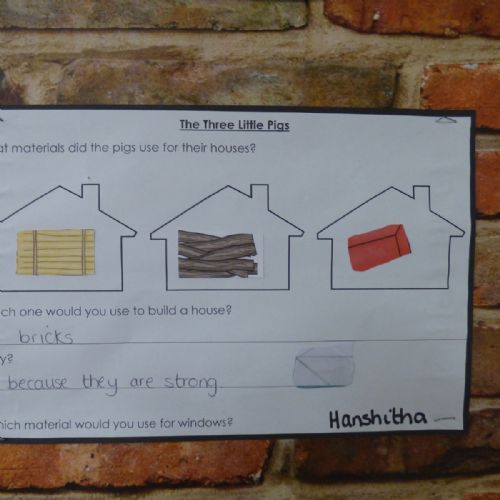 The Three Little Pigs
at materials did the pigs use for their houses?
ch one would you use to build a house?
bricks
y?
because they are strong
hich material would you use for windows?
Hanshitha